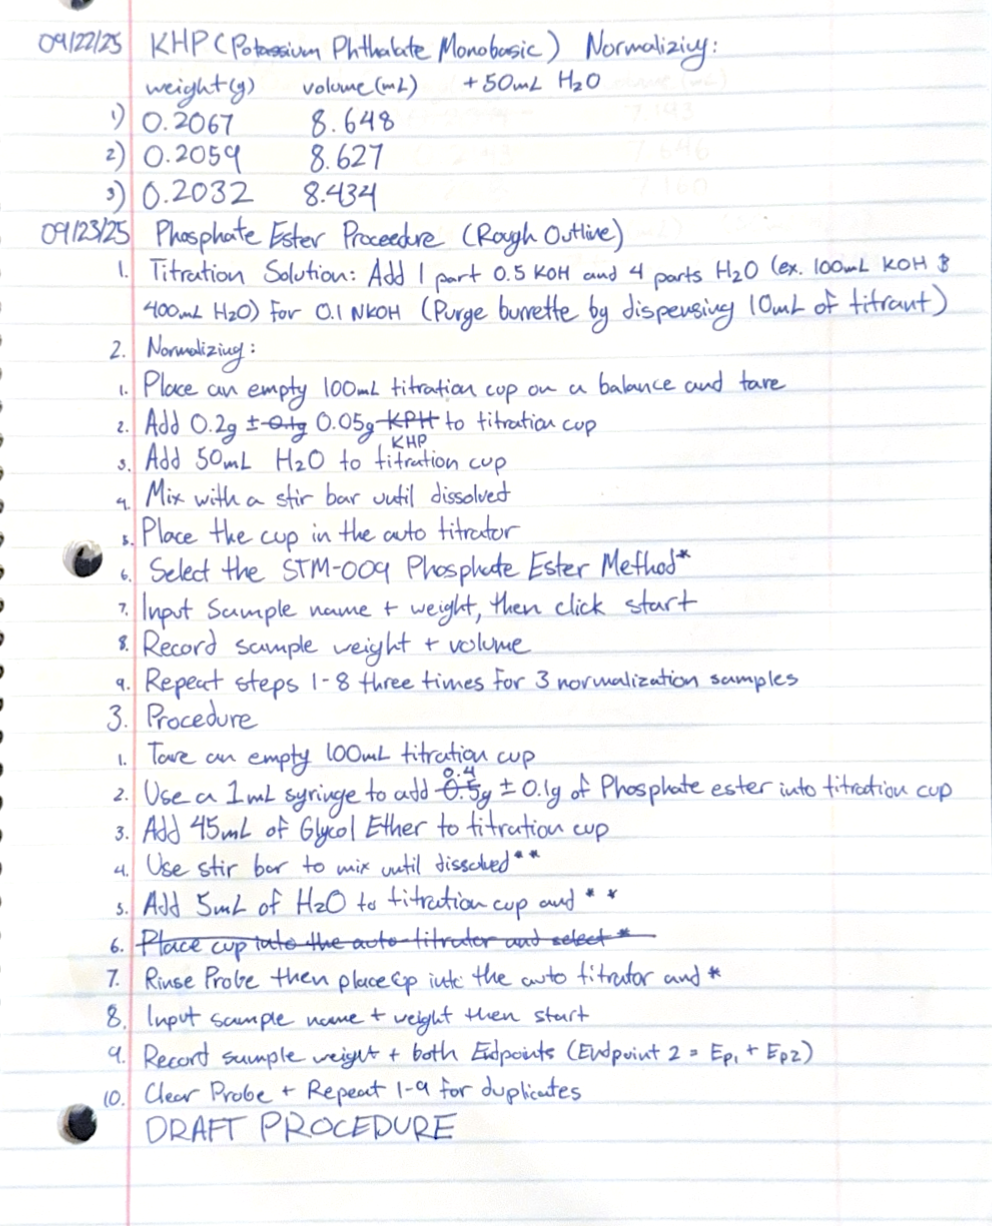 09/22/25 KHP (Potassium Phthalate Monobasic) Normalizing:
weight(g) volume(mL) +50mL H2O
1) 0.2067 8.648
2) 0.2059 8.627
3) 0.2032 8.434
09/23/25 Phosphate Ester Proceedure (Rough Outline)
1. Titration Solution: Add 1 part 0.5 KOH and 4 parts H2O (ex. 100mL KOH &
400mL H2O) for 0.1 NKOH (Purge burrette by dispensing 10mL of titrant)
2. Normalizing:
1. Place an empty 100mL titration cup on a balance and tare
2. Add 0.2g ± 0.1g 0.05g KPH to titration cup
KHP
3. Add 50mL H2O to titration cup
4. Mix with a stir bar until dissolved
5. Place the cup in the auto titrator
6. Select the STM-009 Phosphate Ester Method*
7. Input Sample name + weight, then click start
8. Record sample weight + volume
9. Repeat steps 1-8 three times for 3 normalization samples
3. Procedure
1. Tare an empty 100mL titration cup
0.4
2. Use a 1mL syringe to add 0.5g ± 0.1g of Phosphate ester into titration cup
3. Add 45mL of Glycol Ether to titration cup
4. Use stir bar to mix until dissolved**
5. Add 5mL of H2O to titration cup and **
6. Place cup into the auto-titrator and select *
7. Rinse Probe then place cp into the auto titrator and *
8. Input sample name + weight then start
9. Record sample weight + both Endpoints (Endpoint 2 = Ep1 + Ep2)
10. Clear Probe + Repeat 1-9 for duplicates
DRAFT PROCEDURE